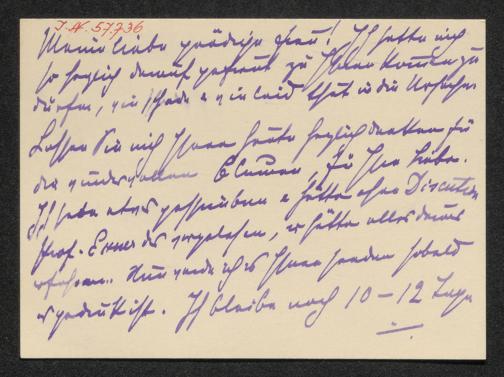 I.N. 57.736
Meine liebe gnädige Frau! Ich hatte mich
so herzlich darauf gefreut zu Ihnen kommen zu
dürfen, wie schade u wie leid thut die Ursache.
Lassen Sie mich Ihnen heute herzlich danken für
die wundervollen Blumen, für Ihre Liebe.
Ich habe etwas geschrieben u hätte ohne Discretion
Prof. Exner es vorgelesen, er hätte alles
erfahren. Nun werde ich es Ihnen senden sobald
es gedruckt ist. Ich bleibe noch 10 – 12 Tage